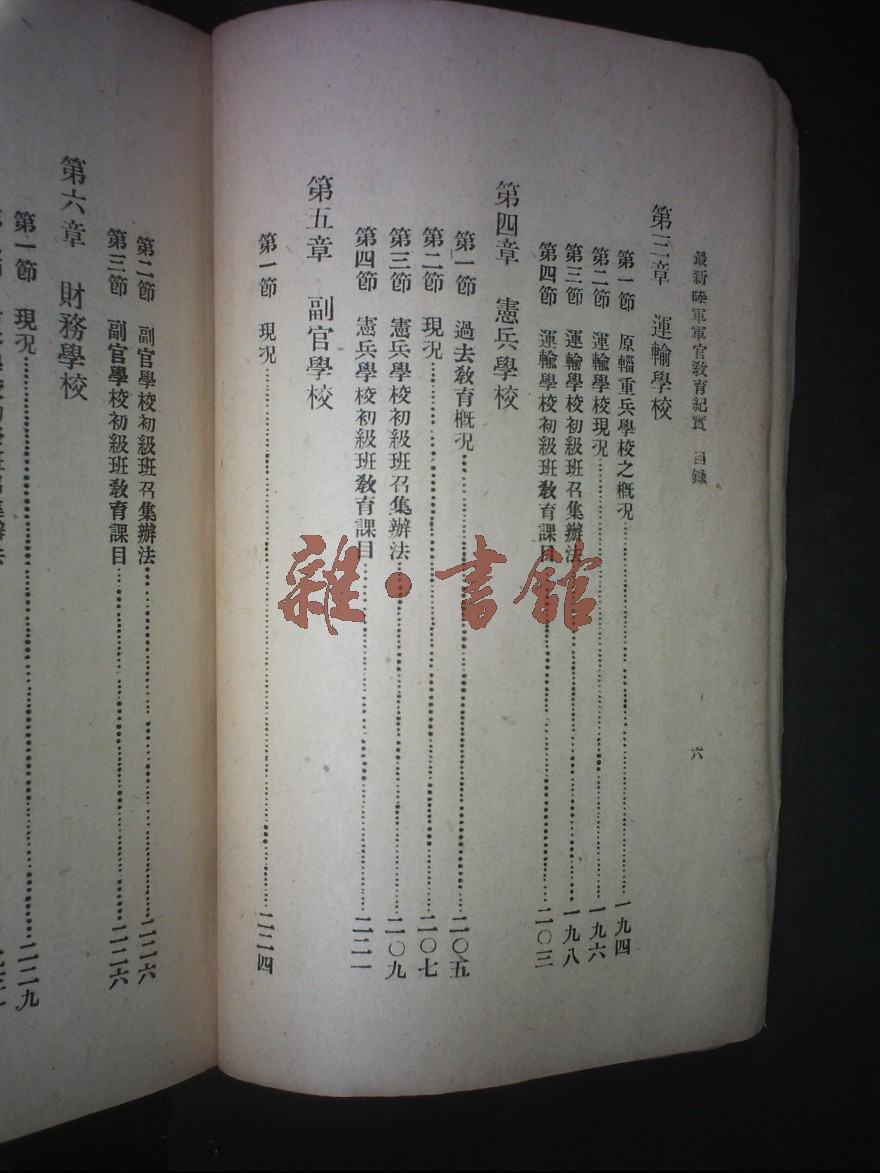 最新陸軍軍官教育紀實 目錄 六
第三章 運輸學校
第一節 原輜重兵學校之概況 一九四
第二節 運輸學校現況 一九六
第三節 運輸學校初級班召集辦法 一九八
第四節 運輸學校初級班教育課目 二〇三
第四章 憲兵學校
第一節 過去教育概況 二〇五
第二節 現況 二〇七
第三節 憲兵學校初級班召集辦法 二〇九
第四節 憲兵學校初級班教育課目 二二一
第五章 副官學校
第一節 現況 二二四
第二節 副官學校初級班召集辦法 二二六
第三節 副官學校初級班教育課目 二二六
第六章 財務學校
第一節 現況 二二九
雜·書館